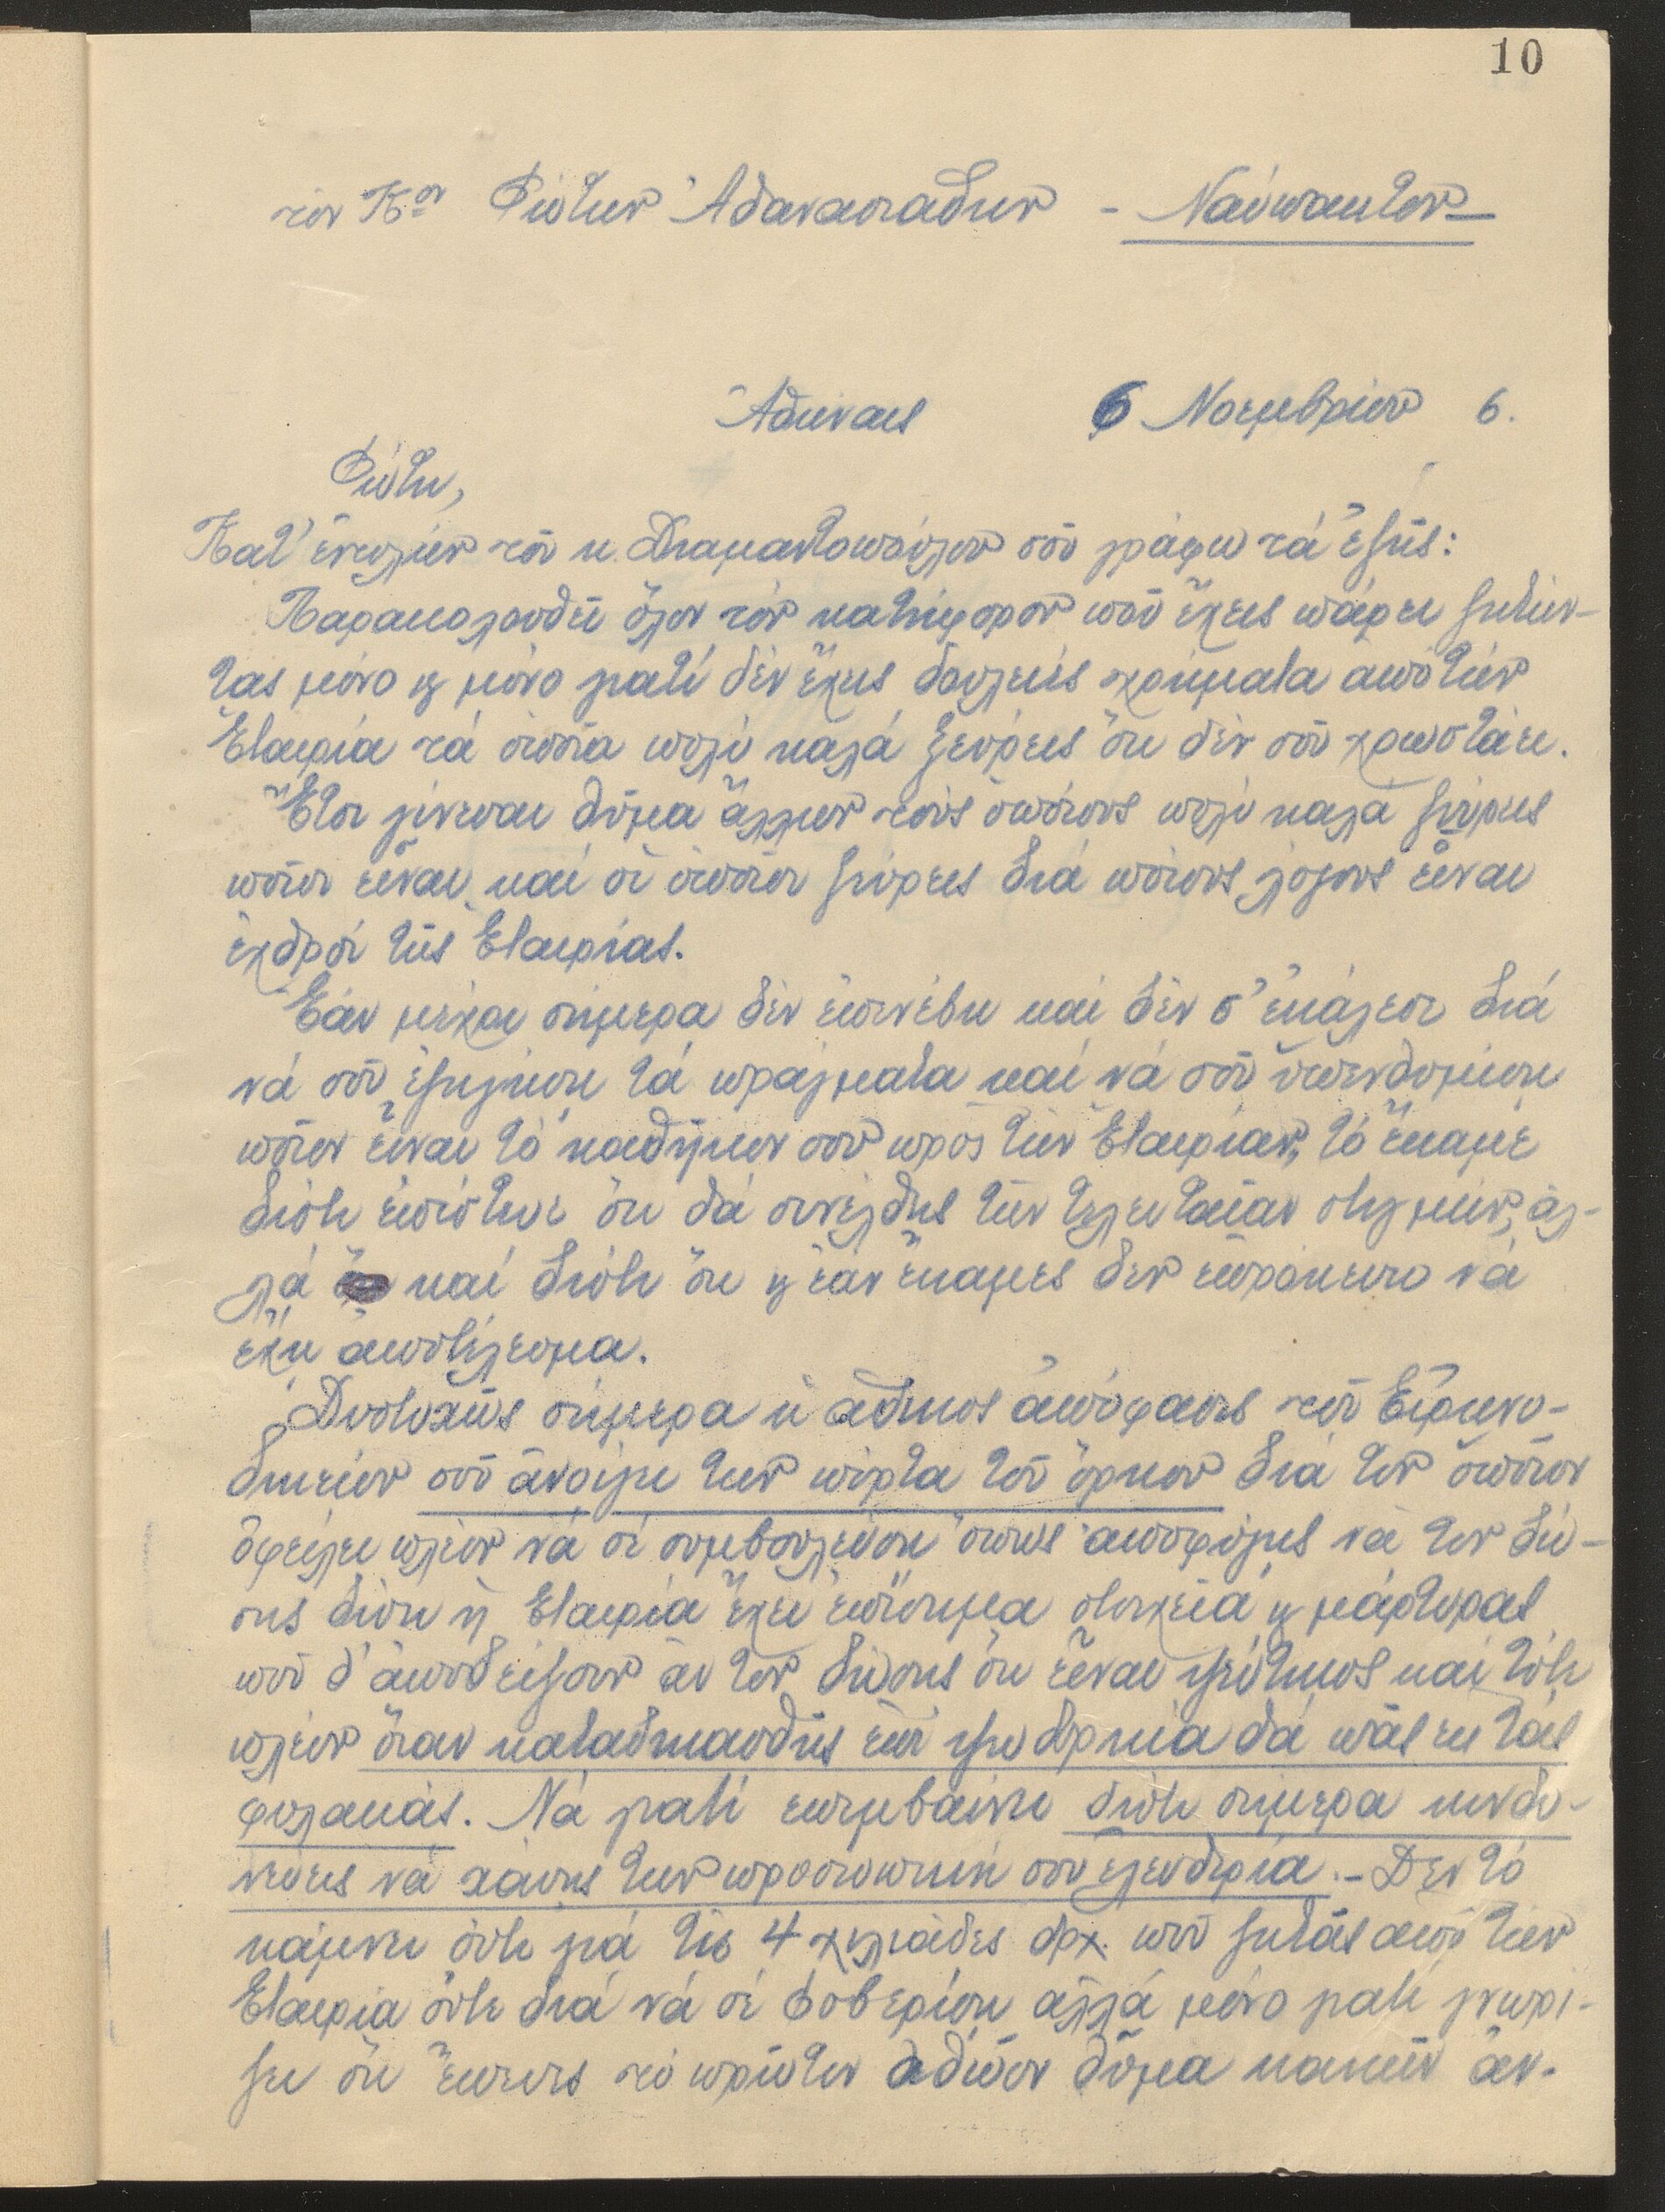 10
τὸν Κον Φώτιον Ἀθανασιάδην - Ναύπακτον
Ἀθῆναι 6 Νοεμβρίου 6.
Φώτη,
Κατ' ἐντολὴν τοῦ κ. Διαμαντοπούλου σοῦ γράφω τά ἑξῆς:
Παρακολουθεῖ ὅλον τόν κατήφορον ποῦ ἔχεις πάρει ζητών-
τας μόνο κ μόνο γιατί δέν ἔχεις δουλειές χρήματα ἀπό τήν
Ἑταιρία τά ὁποῖα πολύ καλά ξεύρεις ὅτι δέν σοῦ χρωστάει.
Ἔτσι γίνεσαι θῦμα ἄλλων τούς ὁποίους πολύ καλά ξεύρεις
ποῖοι εἶναι καί οἱ ὁποῖοι ξεύρεις διά ποίους λόγους εἶναι
ἐχθροί τῆς Ἑταιρίας.
Ἐάν μέχρι σήμερα δέν ἐπενέβη καί δέν σ' ἐκάλεσε διά
νά σοῦ ἐξηγήση τά πράγματα καί νά σοῦ ὑπενθυμίση
ποῖον εἶναι τό καθῆκον σου πρός τήν Ἑταιρίαν, τό ἔκαμε
διότι ἐπίστευε ὅτι θά συνέλθης τήν τελευταίαν στιγμήν, ἀλ-
λά καί διότι ὅτι κ ἐάν ἔκαμες δεν ἐπρόκειτο νά
ἔχη ἀποτέλεσμα.
Δυστυχῶς σήμερα ἡ ἄδικος ἀπόφασις τοῦ Εἰρηνο-
δικείου σοῦ ἀνοίγει την πόρτα τοῦ ὅρκου διά τον ὁποῖον
ὀφείλει πλέον νά σέ συμβουλεύση ὅπως ἀποφύγης νά τον δώ-
σης διότι ἡ Ἑταιρία ἔχει ἐπίσημα στοιχεῖα κ μάρτυρας
ποῦ θ' ἀποδείξουν ἄν τον δώσης ὅτι εἶναι ψεύτικος καί τότε
πλέον ὅταν καταδικασθῆς ἐπί ψευδορκία θά πᾶς εἰς τάς
φυλακάς. Νά γιατί ἐπεμβαίνει διότι σήμερα κινδυ-
νεύεις νά χάσης την προσωπική σου ἐλευθερία.- Δεν τό
κάμνει οὔτε γιά τίς 4 χιλιάδες δρχ. ποῦ ζητᾶς ἀπό τήν
Ἑταιρία οὔτε διά νά σέ φοβερίση ἀλλά μόνο γιατί γνωρί-
ζει ὅτι ἔπεσες τό πρῶτον ἀθῶον θῦμα κακῶν ἀν-